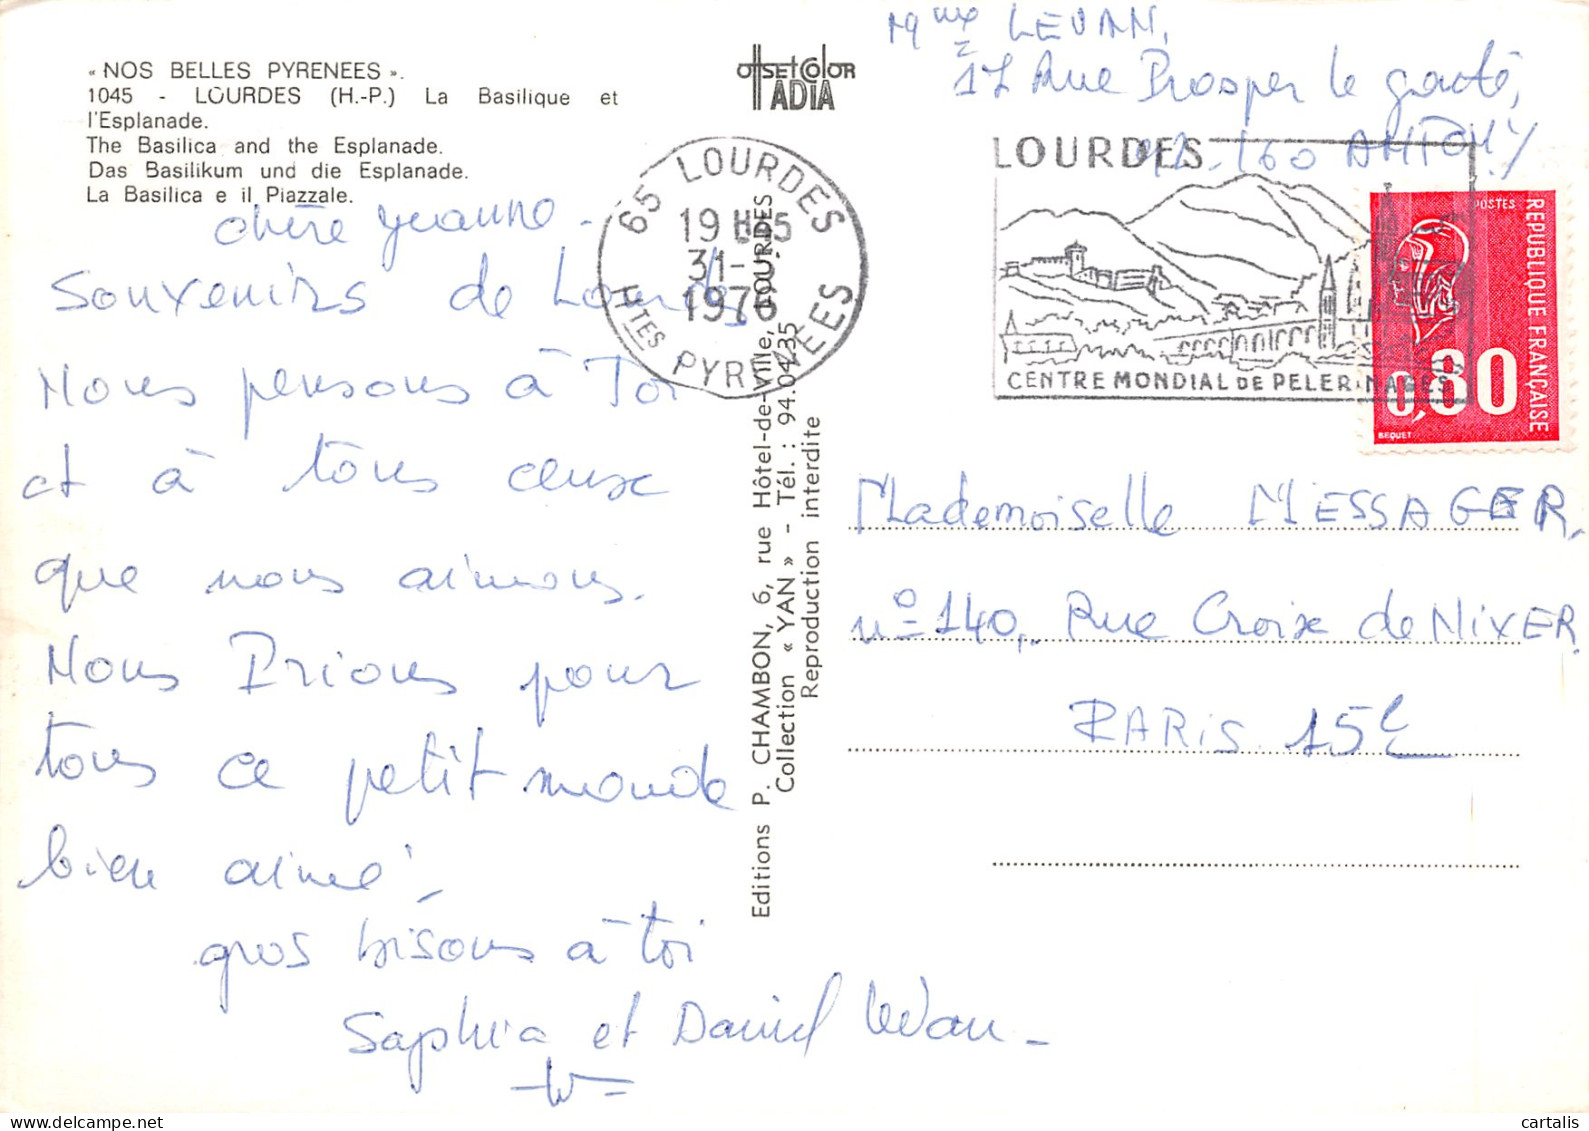 « NOS BELLES PYRENEES ».
1045 - LOURDES (H.-P.) La Basilique et
l'Esplanade.
The Basilica and the Esplanade.
Das Basilikum und die Esplanade.
La Basilica e il Piazzale.
chère yvanne -
Souvenirs de Lourdes
Nous pensons à Toi
et à tous ceux
que nous aimons.
Nous Prions pour
tous ce petit monde
bien aimé,
gros bisous à toi
Saphia et Daniel Levan -
OFFSET COLOR
ADIA
65 LOURDES
19 H 15
31-
1976
HTES PYRENEES
Editions P. CHAMBON, 6, rue Hôtel-de-Ville, LOURDES
Collection « YAN » - Tél. : 94.04.35
Reproduction interdite
LEVAN,
17 Rue Prosper le gouté,
92-160 ANTONY
LOURDES
CENTRE MONDIAL DE PELERINAGES
POSTES
REPUBLIQUE FRANÇAISE
0,80
BEQUET
Mademoiselle MESSAGER.
n° 140, Rue Croix de NiVER.
PARIS. 15e